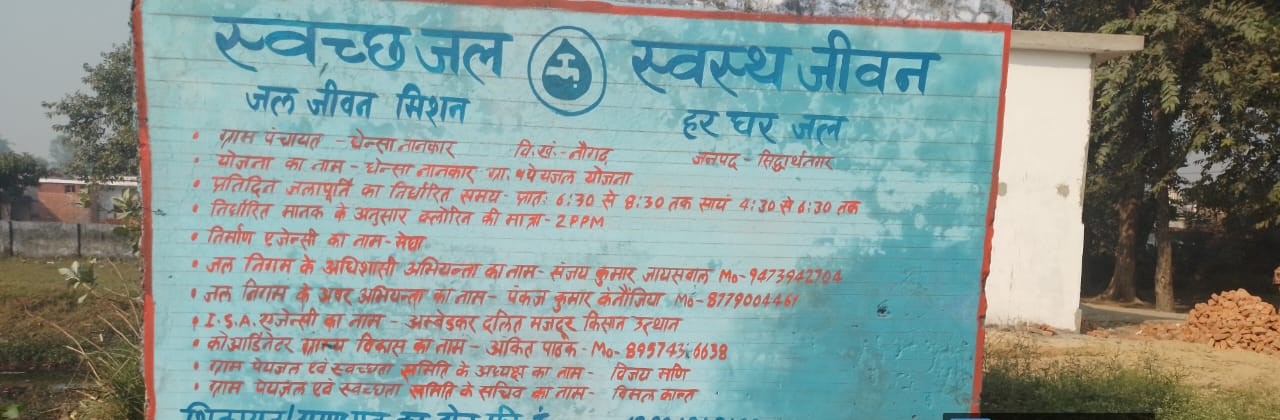 स्वच्छ जल स्वस्थ जीवन
जल जीवन मिशन हर घर जल
• ग्राम पंचायत - घेन्सा नानकार वि.खं.- नौगढ़ जनपद - सिद्धार्थनगर
• योजना का नाम - घेन्सा नानकार ग्रा. पेयजल योजना
• प्रतिदिन जलापूर्ति का निर्धारित समय - प्रातः 6:30 से 8:30 तक सायं 4:30 से 6:30 तक
• निर्धारित मानक के अनुसार क्लोरिन की मात्रा - 2 PPM
• निर्माण एजेन्सी का नाम - मेघा
• जल निगम के अधिशासी अभियन्ता का नाम - संजय कुमार जायसवाल Mo - 9473942704
• जल निगम के अवर अभियन्ता का नाम - पंकज कुमार कन्नौजिया Mo - 8779004461
• I.S.A. एजेन्सी का नाम - अम्बेडकर दलित मजदूर किसान उत्थान
• कोआर्डिनेटर ग्राम्य विकास का नाम - अंकित पाठक - Mo - 8957436638
• ग्राम पेयजल एवं स्वच्छता समिति के अध्यक्ष का नाम - विजय मणि
• ग्राम पेयजल एवं स्वच्छता समिति के सचिव का नाम - विमल कान्त